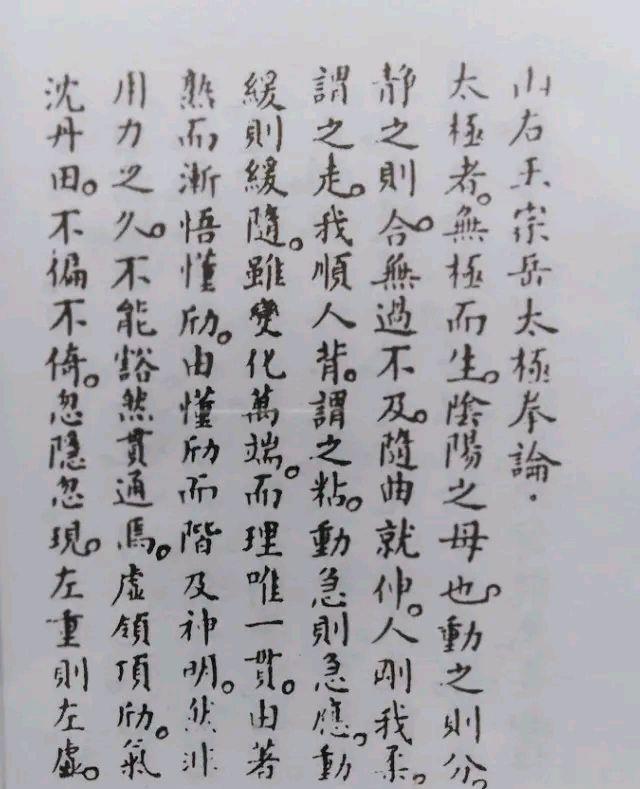 山右王宗岳太極拳論．
太極者。無極而生。陰陽之母也。動之則分。
静之則合。無過不及。隨曲就伸。人剛我柔。
謂之走。我順人背。謂之粘。動急則急應。動
緩則緩隨。雖變化萬端。而理唯一貫。由著
熟而漸悟懂劤。由懂劤而階及神明。然非
用力之久。不能豁然貫通焉。虛領頂劤。氣
沈丹田。不徧不倚。忽隱忽現。左重則左虛。